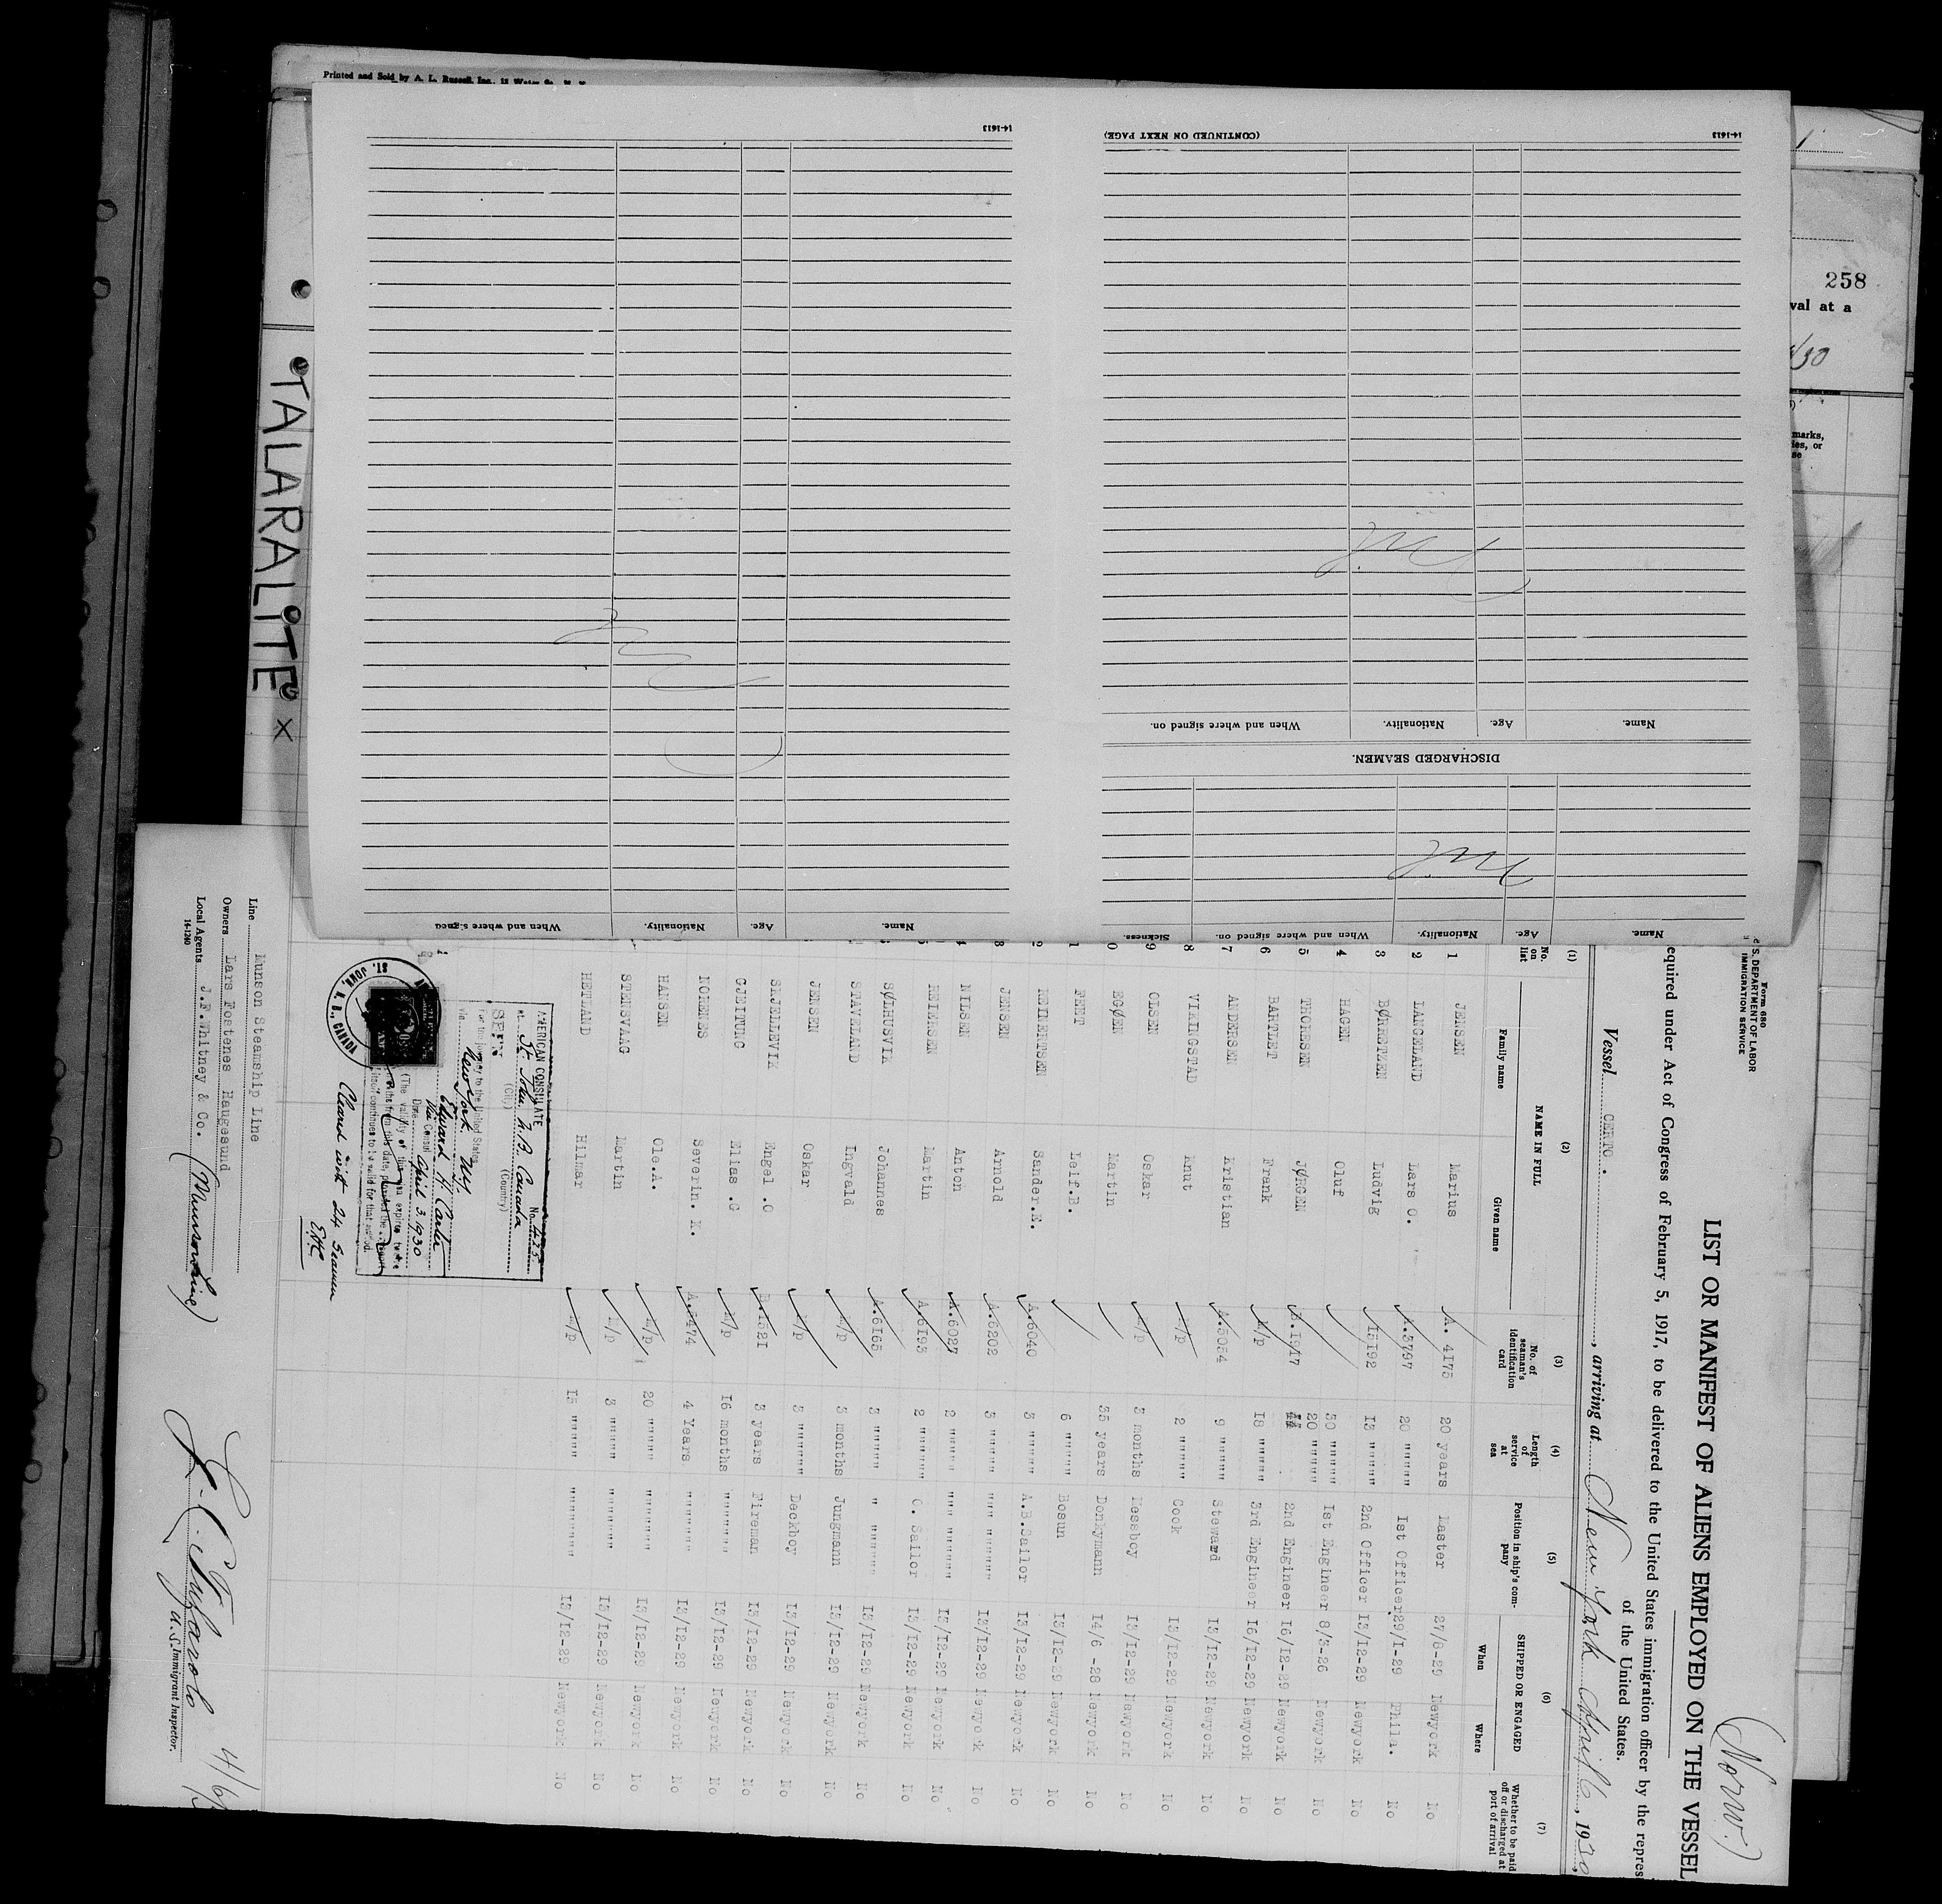 Printed and Sold by A. L. Russell, Inc.,
14-1613
(CONTINUED ON NEXT PAGE)
14-1613
258
val at a
marks,
ies, or
se
TALARALITE X
Name. Age. Nationality. When and where signed on.
DISCHARGED SEAMEN.
Name. Age. Nationality. When and where signed on. Sickness.
Name. Age. Nationality. When and where signed
Form 680
U. S. DEPARTMENT OF LABOR
IMMIGRATION SERVICE
(Norw.)
LIST OR MANIFEST OF ALIENS EMPLOYED ON THE VESSEL
equired under Act of Congress of February 5, 1917, to be delivered to the United States immigration officer by the repres
of the United States.
Vessel CERTO. , arriving at New York April 6, 1930
(1) (2) (3) (4) (5) (6) (7)
No. on list
NAME IN FULL
Family name Given name
No. of seaman's identification card
Length of service at sea
Position in ship's company
SHIPPED OR ENGAGED
When Where
Whether to be paid off or discharged at port of arrival
1 JENSEN Marius A. 4175 20 years Master 27/8-29 Newyork No
2 LANGELAND Lars O. A.3797 20 """"" Ist Officer 29/I-29 Phila. No
3 BØRETZEN Ludvig I5I92 I3 """"" 2nd Officer I3/I2-29 Newyork No
4 HAGEN Oluf 30 """"" Ist Engineer 8/3-26 Newyork No
5 THORESEN JØRGEN B.I917 20 """"" 2nd Engineer I6/I2-29 Newyork No
6 BARTLET Frank M/p I8 """"" 3rd Engineer I6/I2-29 Newyork No
7 ANDERSEN Kristian A.5054 9 """"" Steward I3/I2-29 Newyork No
8 VIKINGSTAD Knut M/p 2 """"" Cook I3/I2-29 Newyork No
9 OLSEN Oskar M/p 3 months Messboy I3/I2-29 Newyork No
0 EGØEN Martin 35 years Donkymann I4/6 -28 Newyork No
1 FEET Leif.B. 6 """"" Bosun I3/I2-29 Newyork No
2 REINERTSEN Sander.E. A.6040 3 """"" A.B.Sailor I3/I2-29 Newyork No
3 JENSEN Arnold A.6202 3 """"" """ """""" I3/I2-29 Newyork No
4 NILSEN Anton A.6027 2 """"" """ """""" I3/I2-29 Newyork No
5 REIERSEN Martin A.6I93 2 """"" O. Sailor I3/I2-29 Newyork No
SØLHUSVIK Johannes A.6I65 3 """"" " """""" I3/I2-29 Newyork No
STAVELAND Ingvald M/p 3 months Jungmann I3/I2-29 Newyork No
JENSEN Oskar M/p 3 """""" Deckboy I3/I2-29 Newyork No
SKJELLEVIK Engel .O B.I52I 3 years Fireman I3/I2-29 Newyork No
GJEITUNG Elias .G M/p I6 months """""" I3/I2-29 Newyork No
NORENES Severin. K. A.5474 4 Years """""" I3/I2-29 Newyork No
HANSEN Ole.A. M/p 20 """"" """""" I3/I2-29 Newyork No
STENSVAAG Martin M/p 3 """"" """""" I3/I2-29 Newyork No
HETLAND Hilmar M/p I5 """"" """""" I3/I2-29 Newyork No
AMERICAN CONSULATE No. 425
at St. John N.B. Canada
(City) (Country)
SEEN
For the journey to the United States
via New York NY
Edward K. Carter
Vice Consul
Date April 3 1930
(The validity of this visa expires twelve
months from this date, provided the
itself continues to be valid for that period.
ST. JOHN, N. B., CANADA
Cleared with 24 seamen
Line Munson Steamship Line
Owners Lars Fostenes Haugesund
Local Agents J.F.Whitney & Co. (Munson Line)
14-1240
U. S. Immigrant Inspector.
4/6/